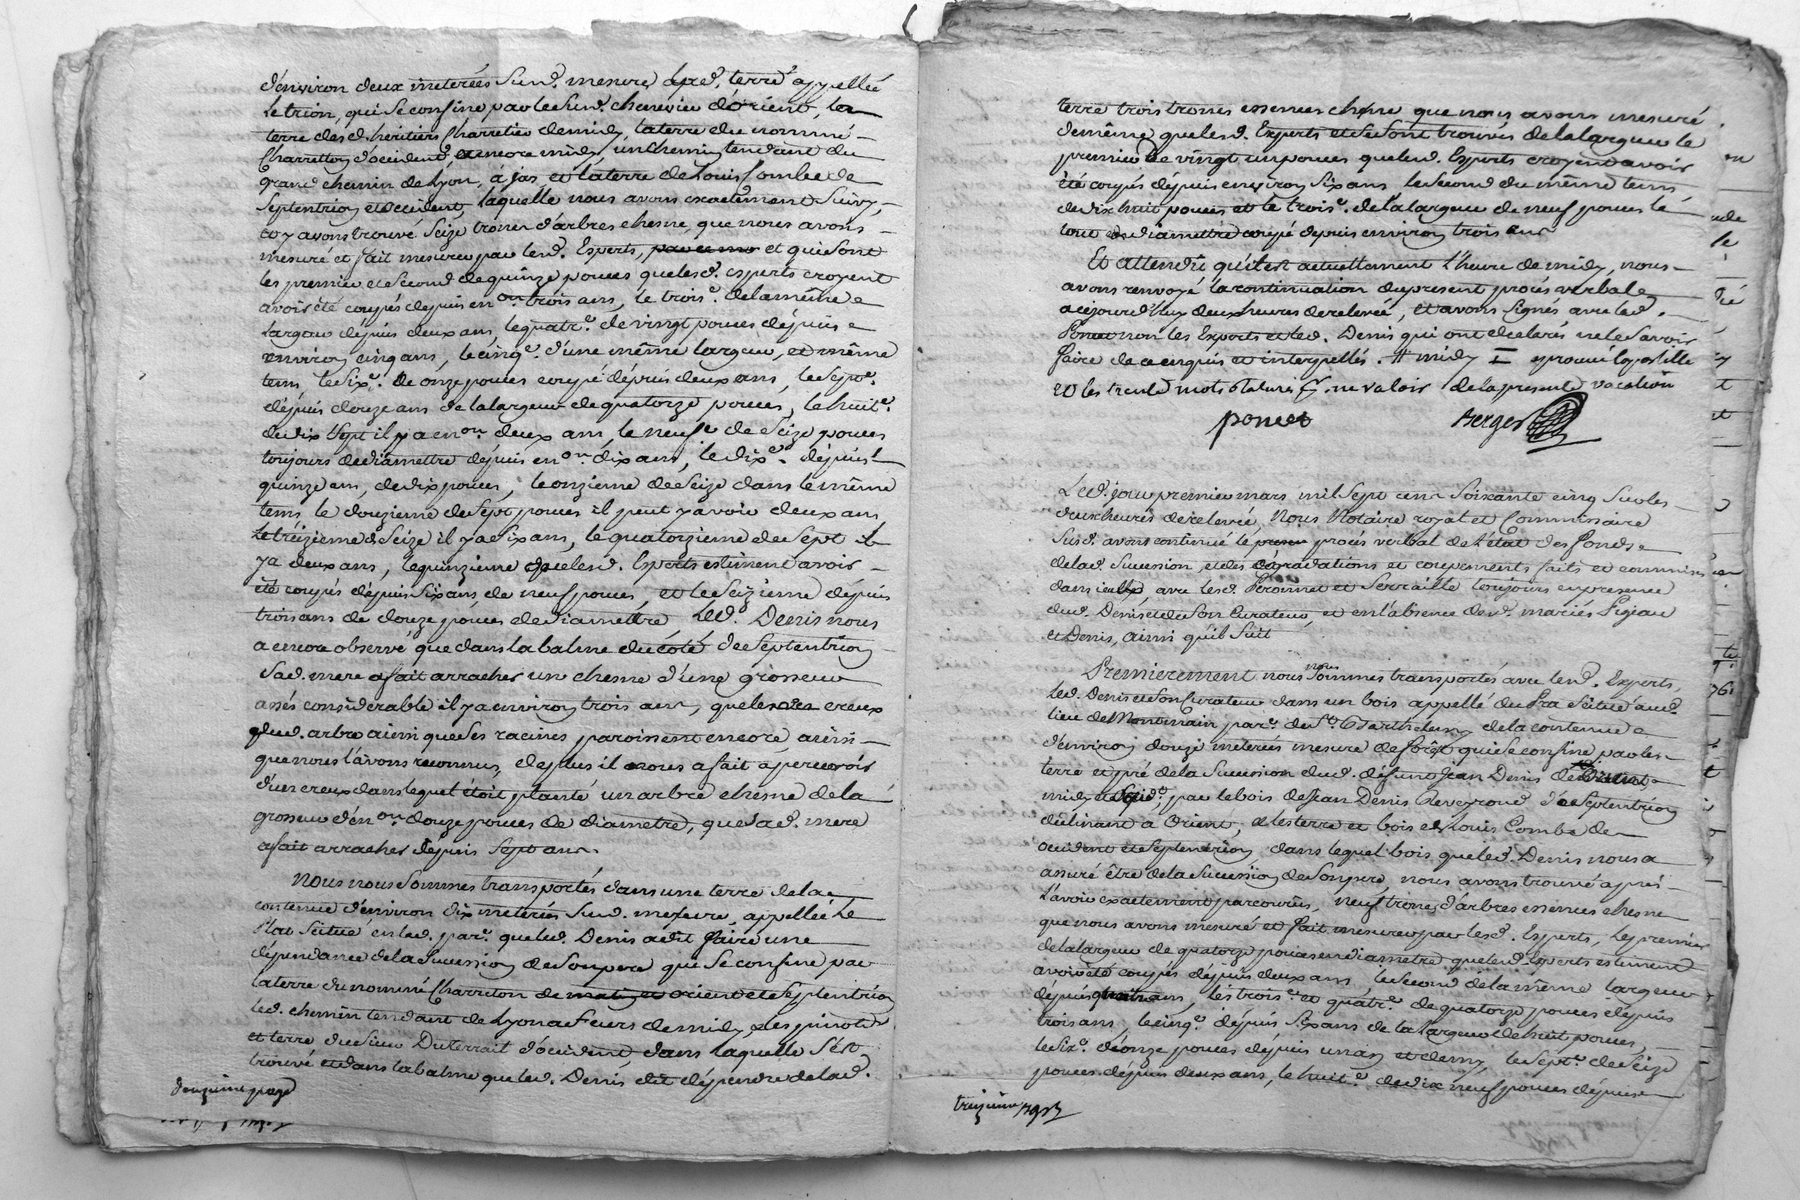 d'environ deux meterées Susd. mesure, terre appellée
Le trion, qui se confine par le Susd. chenevier d'orient, la
terre des d. héritiers Charretier de midy, la terre du nommé
Charretton d'occident encore midy un chemin tendant du
grand chemin de Lyon, a et la terre de Louis Combe de
Septentrion et occident, laquelle nous avons exactement Suivy,
et y avons trouvé Seize troncs d'arbres chesne, que nous avons
mesuré et fait mesurer par lesd. Experts, et qui sont
les premier et second de quinze pouces que lesd. experts croyent
avoir été coupés depuis en.on trois ans, le trois.e de la même
largeur depuis deux ans, le quatr.e de vingt pouces depuis
environ cinq ans, le cinq.e d'une même largeur, et même
tems, le Six.e de onze pouces coupé depuis deux ans, le Sept.e
depuis douze ans de la largeur de quatorze pouces, le huit.e
de dix Sept il y a en.on deux ans, le neufe de Seize pouces
toujours de diamettre depuis en.on dix ans, le dix.e depuis
quinze ans, de dix pouces, le onzieme de Seize dans le même
tems le douzieme de Sept pouces il peut y avoir deux ans
Le treizieme de Seize il y a Six ans, le quatorzieme de Sept il
y a deux ans, le quinzieme que lesd. Experts estiment avoir
été coupés depuis Six ans, de neuf pouces, et le Seizieme depuis
trois ans de douze pouces de diamettre Led. Denis nous
a encore observé, que dans la balme du côté de Septentrion
Sad. mere a fait arracher un chesne d'une grosseur
assés considerable il y a environ trois ans, que les creux
dud. arbre ainsi que Ses racines paroissent encore, ainsi
que nous l'avons reconnu, de plus il nous a fait apercevoir
d'un creux dans lequel étoit planté un arbre chesne de la
grosseur d'en.on douze pouces de diametre, que Sad. mere
a fait arracher depuis Sept ans.
Nous nous Sommes transportés dans une terre de la
contenue d'environ dix meterées Susd. mesure, appellée Le
Plat Scitué en lad. par.e que led. Denis a dit faire une
dépendance de la Succession de Son pere qui Se confine par
la terre du nommé Charretton de orient et Septentrion
led. chemin tendant de Lyon a Feurs de midy,
et terre du Sieur Duterrail d'occident dans laquelle S'est
trouvé et dans la balme que led. Denis dit dépendre de lad.
douzieme page
terre trois troncs essences chesne que nous avons mesuré
de même que lesd. Experts et se sont trouvés de la largeur le
premier de vingt un pouces que lesd. Experts croyent avoir
été coupés depuis environ Six ans le Second du même tems
de dix huit pouces et le trois.e de la largeur de neuf pouces le
tout de diamettre coupé depuis environ trois ans
Et attendu qu'il est actuellement l'heure de midy, nous
avons renvoyé la continuation du present procés verbal
a cejourd'huy deux heures de relevée, et avons Signés avec led.
Poncet non les Experts et led. Denis qui ont declarés ne le Savoir
faire de ce enquis et interpellés. # midy
et les trente mots ne valoir de la presente vacation
poncet Berger
Led. jour premier mars mil Sept cent Soixante cinq Sur les
deux heures de relevée, Nous Notaire royal et Commissaire
Susd. avons continué le procés verbal de l'état des fonds
de lad. Succession, et des dégradations et coupements faits et commis
dans iceux avec lesd. Peronnet et Serraille toujours en presence
dud. Denis et de Son Curateur, et en l'absence desd. mariés Pigeau
et Denis, ainsi qu'il Suit
Premierement nous nous Sommes transportés avec lesd. Experts,
led. Denis et Son Curateur dans un bois appellé du Pra Scitué aud.
lieu de par.e de S.t Barthelemy de la contenue
d'environ douze meterées mesure de forez qui Se confine par les
terre et pré de la Succession dud. défunt Jean Denis de
midy par le bois de Jean Denis Reveyrond de Septentrion
declinant a Orient, et les terre et bois de Louis Combe de
occident et Septentrion, dans lequel bois que led. Denis nous a
assuré être de la Succession de Son pere, nous avons trouvé aprés
l'avoir exactement parcouru, neuf troncs d'arbres essences chesne
que nous avons mesuré et fait mesurer par lesd. Experts, le premier
de la largeur de quatorze pouces en diametre que lesd. Experts estiment
avoir été coupés depuis deux ans, le Second de la même largeur
depuis ans, les trois.e et quatr.e de quatorze pouces depuis
trois ans, le cinq.e depuis Six ans de la largeur de huit pouces,
le Six.e d'onze pouces depuis un an et demy, le Sept.e de Seize
pouces depuis deux ans, le huit.e de dix neuf pouces depuis
treizieme page